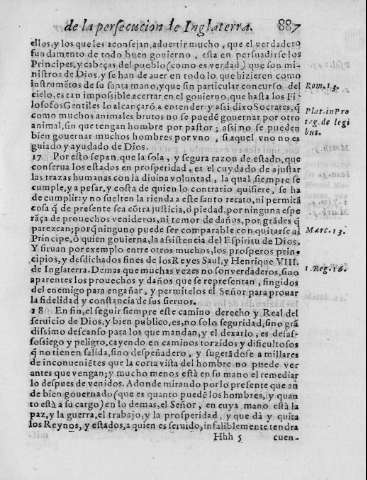 de la persecucion de Inglaterra. 887
ellos, y los que les aconsejan, aduertir mucho, que el verdadero
fundamento de todo buen gouierno, està en persuadirse los
Principes, y cabeças del pueblo (como es verdad) que son mi-
nistros de Dios, y se han de auer en todo lo que hizieren como
instrumẽtos de su santa mano, y que sin particular concurso del
cielo, es tan impossible acertar en el gouierno, que hasta los Fi-
losofos Gentiles lo alcançarõ a entender, y assi dixo Socrates, q̃
como muchos animales brutos no se puedẽ gouernar por otro
animal, sin que tengan hombre por pastor; assi no se pueden
bien gouernar muchos hombres por vno, si aquel vno no es
guiado y ayudado de Dios.
Rom. 13.
Plat. in Pro
tag. de legi
bus.
17 Por esto sepan que la sola, y segura razon de estado, que
conserua los estados en prosperidad, es el cuydado de ajustar
las trazas humanas con la diuina voluntad, la qual siempre se
cumple, y a pesar, y costa de quien lo contrario quisiere, se ha
de cumplir: y no suelten la rienda a este santo recato, ni permitã
cosa q̃ de presente sea cõtra justicia, ò piedad, por ninguna espe
rãça de prouechos venideros, ni temor de daños, por grãdes q̃
parezcan; porq̃ ninguno puede ser comparable con quitarse al
Principe, ò quien gouierna, la assistencia del Espiritu de Dios.
Y siruan por exemplo entre otros muchos, los prosperos prin-
cipios, y desdichados fines de los Reyes Saul, y Henrique VIII.
de Inglaterra. Demas que muchas vezes no son verdaderos, sino
aparentes los prouechos y daños que se representan, fingidos
del enemigo para engañar, y permitelos el Señor para prouar
la fidelidad y constancia de sus sieruos.
Marc. 13.
1. Reg. 16.
18 En fin, el seguir siempre este camino derecho y Real del
seruicio de Dios, y bien publico, es, no solo seguridad, sino grã
dissimo descanso para los que mandan, y el dexarlo, es desas-
sossiego y peligro, cayendo en caminos torzidos y dificultosos
q̃ no tienen salida, sino despeñadero, y sugetãdose a millares
de inconuenientes que la corta vista del hombre no puede ver
antes que vengan; y mucho menos està en su mano el remediar
lo despues de venidos. Adonde mirando por lo presente que an
de bien gouernado (que es quanto puedẽ los hombres, y quan
to està a su cargo) en lo demas, el Señor, en cuya mano està la
paz, y la guerra, el trabajo, y la prosperidad, y que dà y quita
los Reynos, y estados, a quien es seruido, infaliblemente tendra
Hhh 5 cuen-